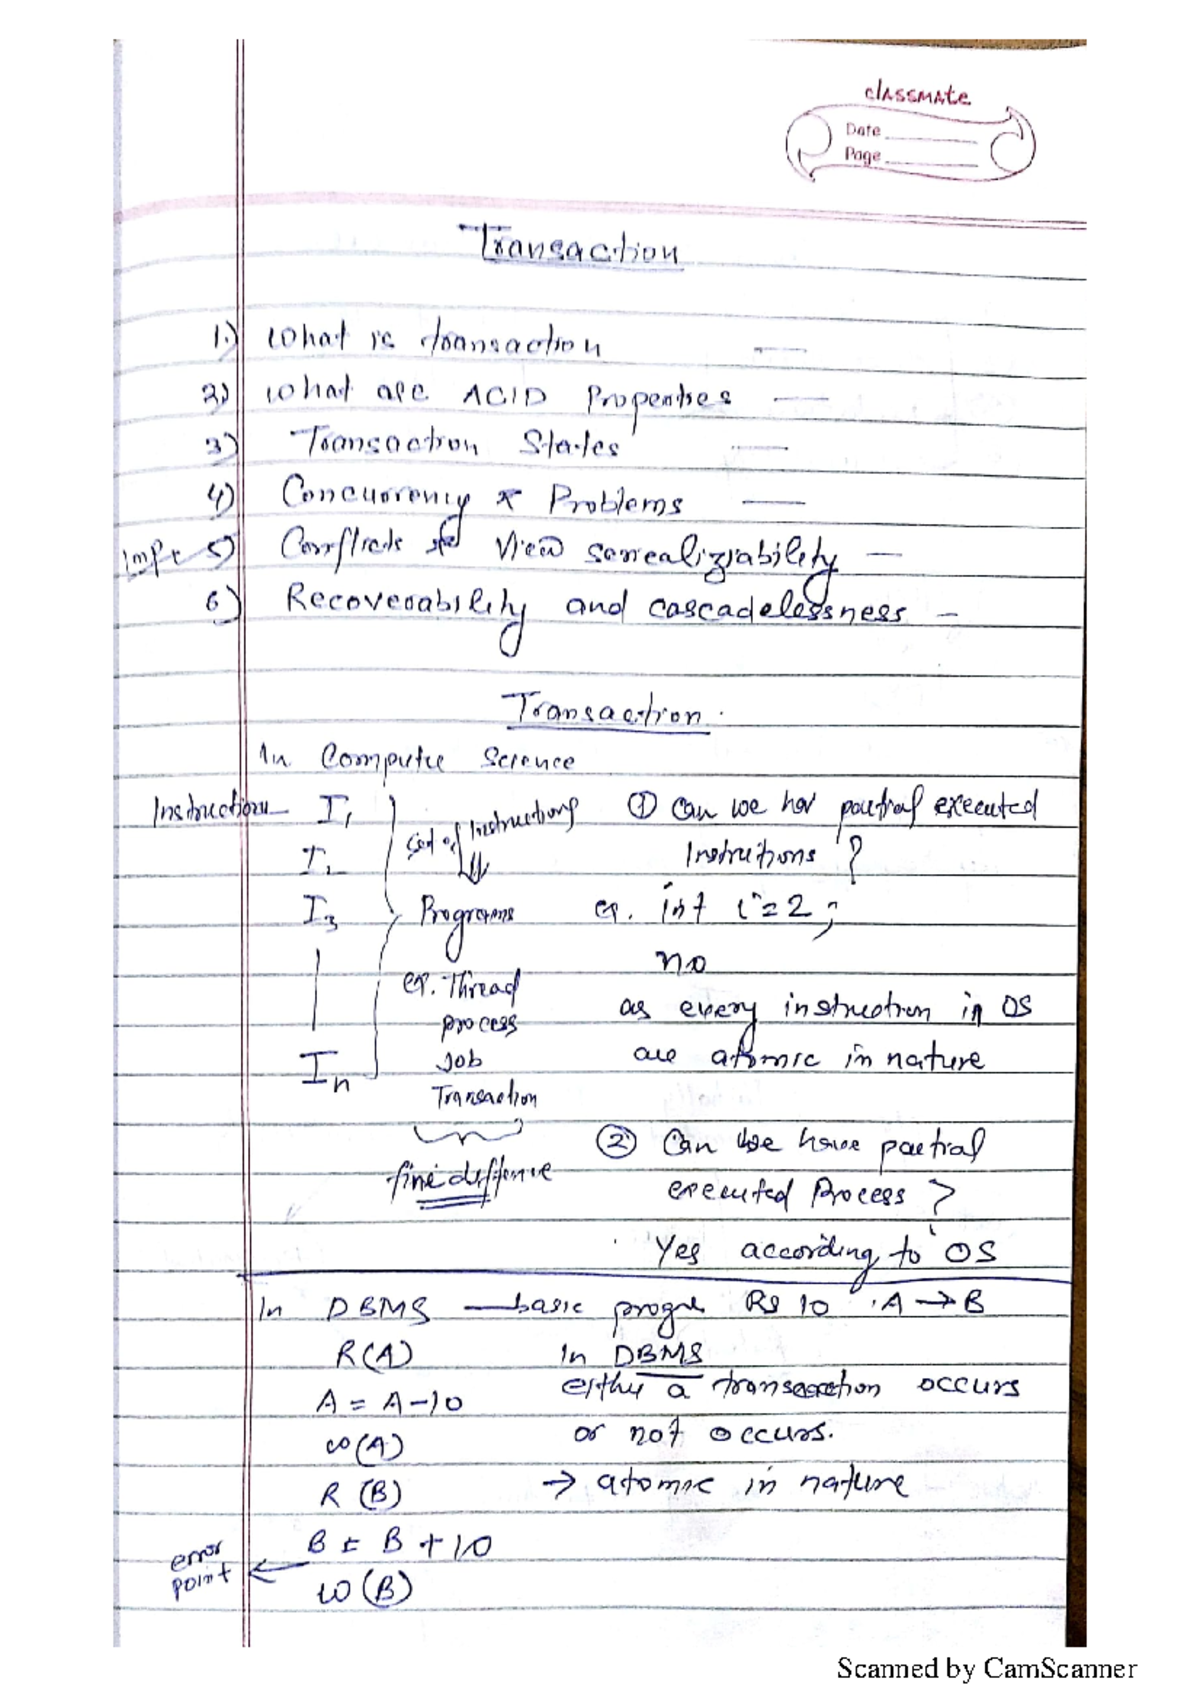 classmate
Date
Page
Transaction
1.) What is transaction —
2) What are ACID Properties —
3) Transaction States —
4) Concurrency * Problems —
Impt 5) Conflict & View serrealizability —
6) Recoverability and cascadelessness —
Transaction.
In Computer Science
Instruction I1
I2
I3
In
Set of Instructions
Programs
ex. Thread
process
Job
Transaction
fine difference
① Can we hav partial executed
Instructions ?
ex. int i=2;
no
as every instruction in OS
are atomic in nature
② Can we have partial
executed Process ?
Yes according to OS
In DBMS — basic progm Rs 10 A → B
R(A)
A = A-10
W(A)
R (B)
B = B + 10
W(B)
error
point
In DBMS
either a transaction occurs
or not occurs.
→ atomic in nature
Scanned by CamScanner